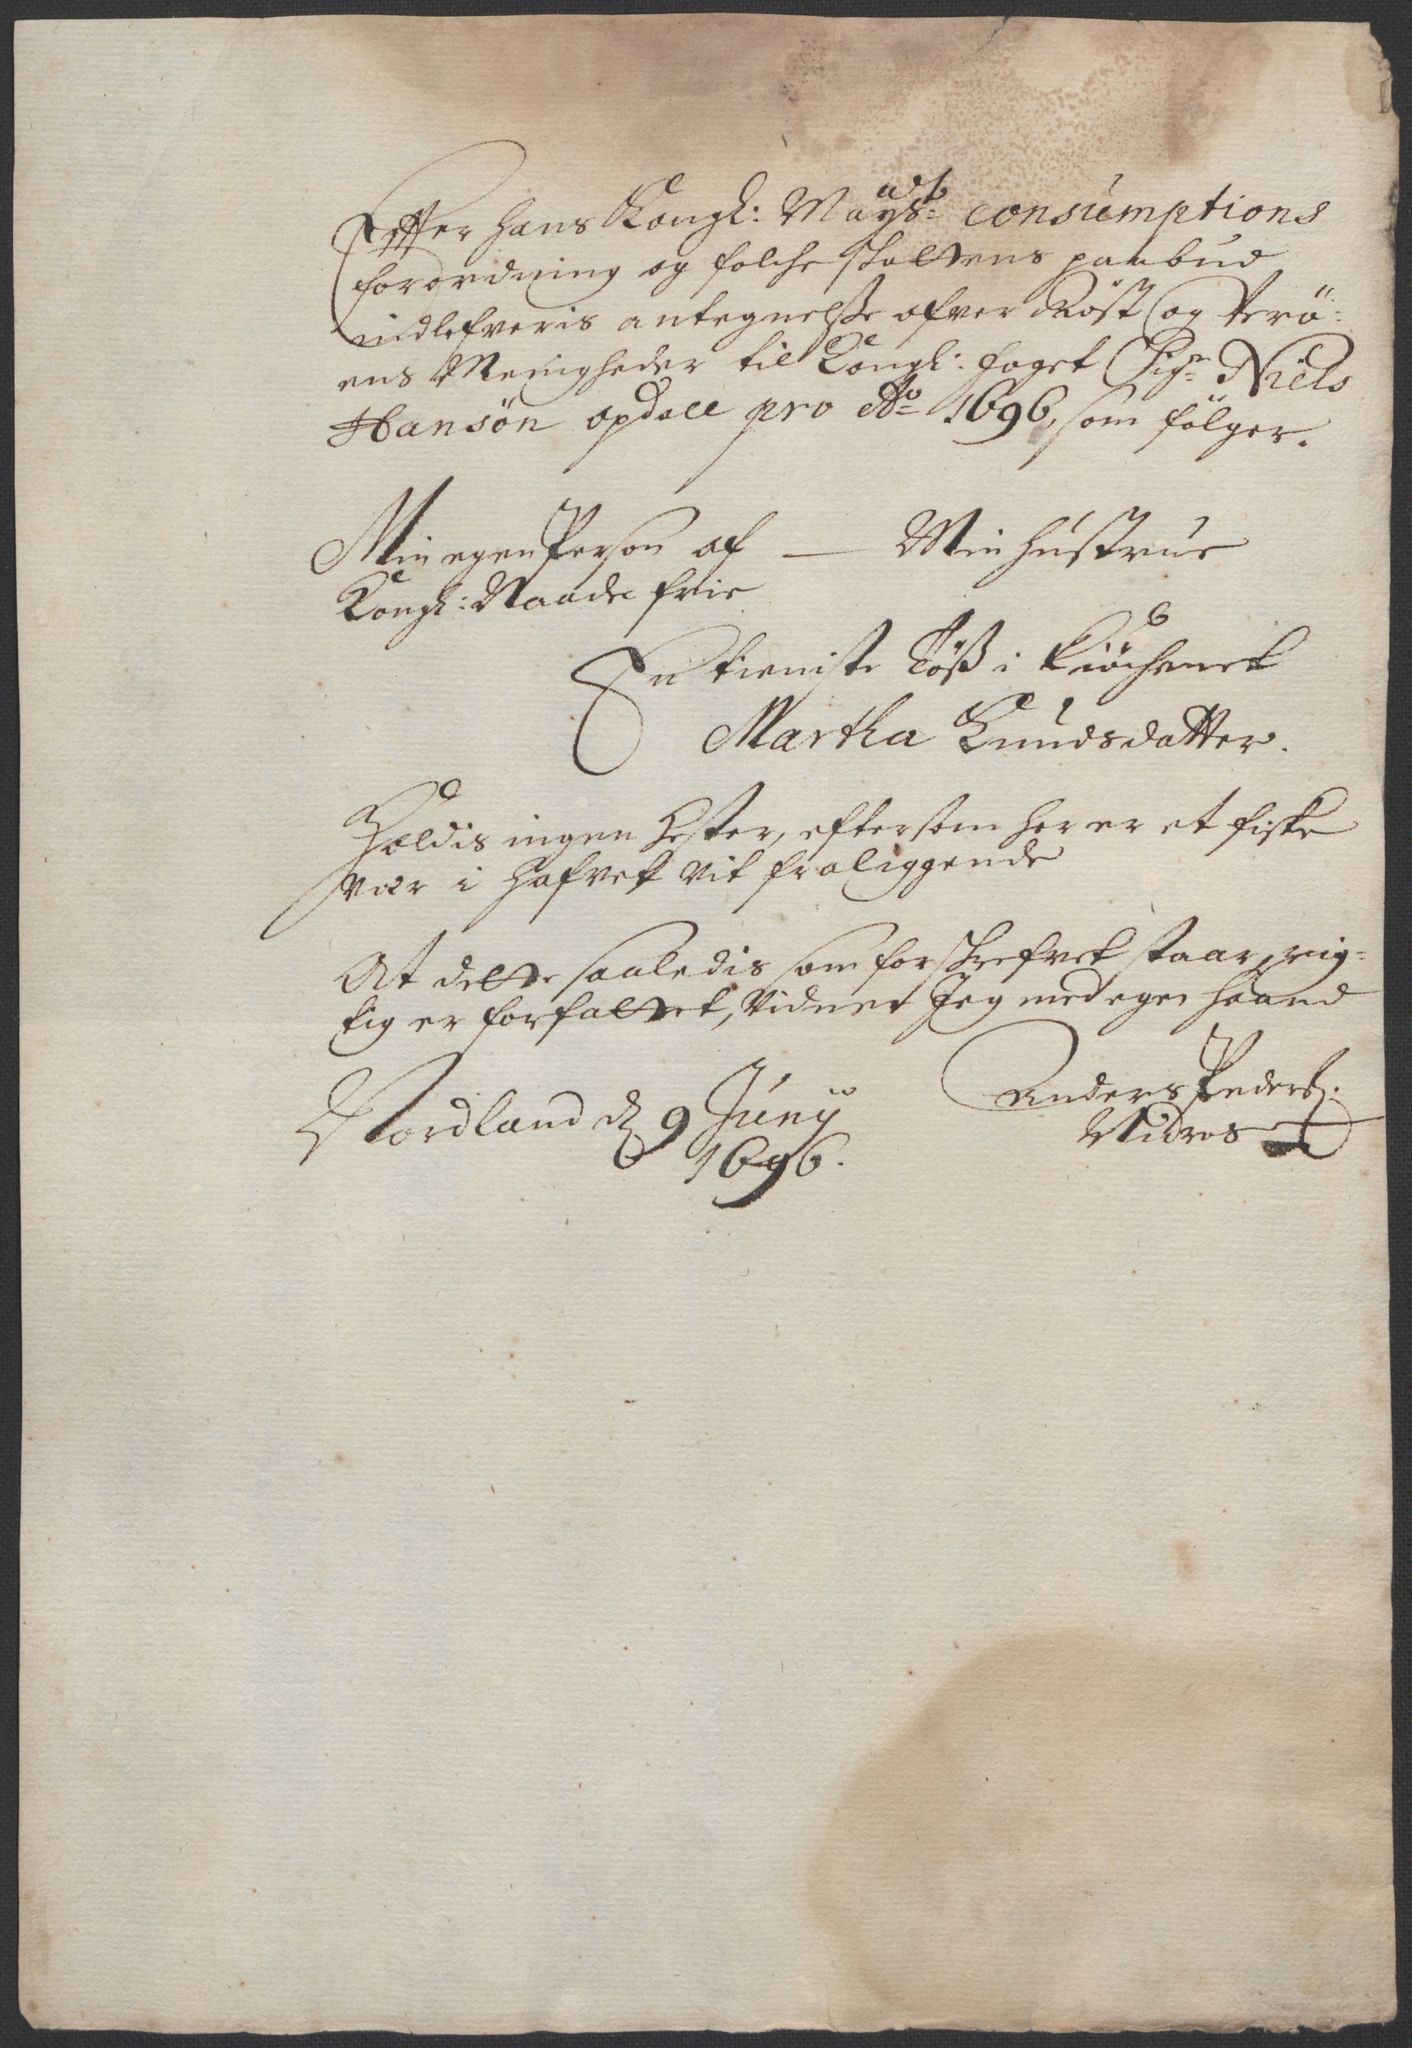 Effter hans Kongl: Mayst:s consumptions
forordning og folche skattens paabud
indlefveris antegnelse ofver Röst og Verö-
ens Meenigheder til Kongl: foget Sigr Niels
Hansön opdall pro Ao 1696, som fölger.
Min egen Person af — Min hustrue
Kongl: Naade frie
En tieniste Töß i kiöchenet
Martha Knudsdatter.
Holdis ingen hester, eftersom her er et fiske
vær i hafvet vit fraliggende
At dette saaledis som forskrefvet staar, rig-
tig er forfattet, vidner Jeg med egen haand
Nordland d 9 Junÿ
1696.
Anders Peders:
Nidros